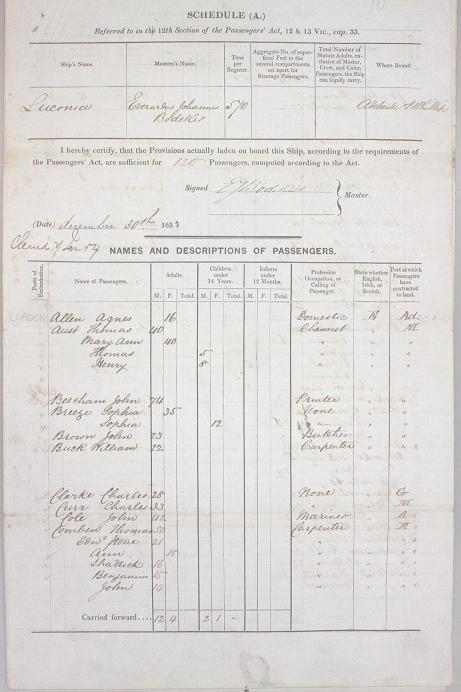 SCHEDULE (A.)
Referred to in the 12th Section of the Passengers' Act, 12 & 13 Vic., cap. 33.
Ship's Name. Master's Name. Tons per Register. Aggregate No. of superficial Feet in the several compartments set apart for Steerage Passengers. Total Number of Statute Adults, exclusive of Master, Crew, and Cabin Passengers, the Ship can legally carry. Where Bound.
Luconia Everardus Johannes Bödeker 570 Adelaide
I hereby certify, that the Provisions actually laden on board this Ship, according to the requirements of
the Passengers' Act, are sufficient for 120 Passengers, computed according to the Act.
Signed
Master.
(Date) december 30th 1853
NAMES AND DESCRIPTIONS OF PASSENGERS.
Ports of Embarkation. Name of Passengers. Adults. Children under 14 Years. Infants under 12 Months. Profession Occupation, or Calling of Passenger. State whether English, Irish, or Scotch. Port at which Passengers have contracted to land.
M. F. Total. M. F. Total. M. F. Total.
LONDON
Allen Agnes 16 Domestic E Ad.
Aust Thomas 40 Chemist " M
Mary Ann 40 " " "
Thomas 5 " " "
Henry 8 " " "
Beecham John 74 Printer " "
Breeze Sophia 35 None " "
Sophia 12 " " "
Brown John 23 Butcher " "
Buck William 22 Carpenter " "
Clarke Charles 28 None " G
Curr Charles 33 " " M
Cole John 42 Mariner "
Comben Thomas Carpenter " M
Edwd 21 " " "
Ann 18 " " "
Shadrick 16 " " "
Benjamin 15 " " "
John 14 " " "
Carried forward.... 12 4 2 1 -